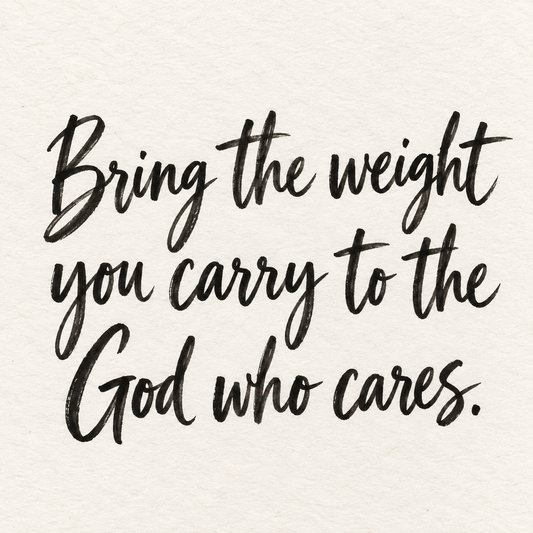 Bring the weight
you carry to the
God who cares.